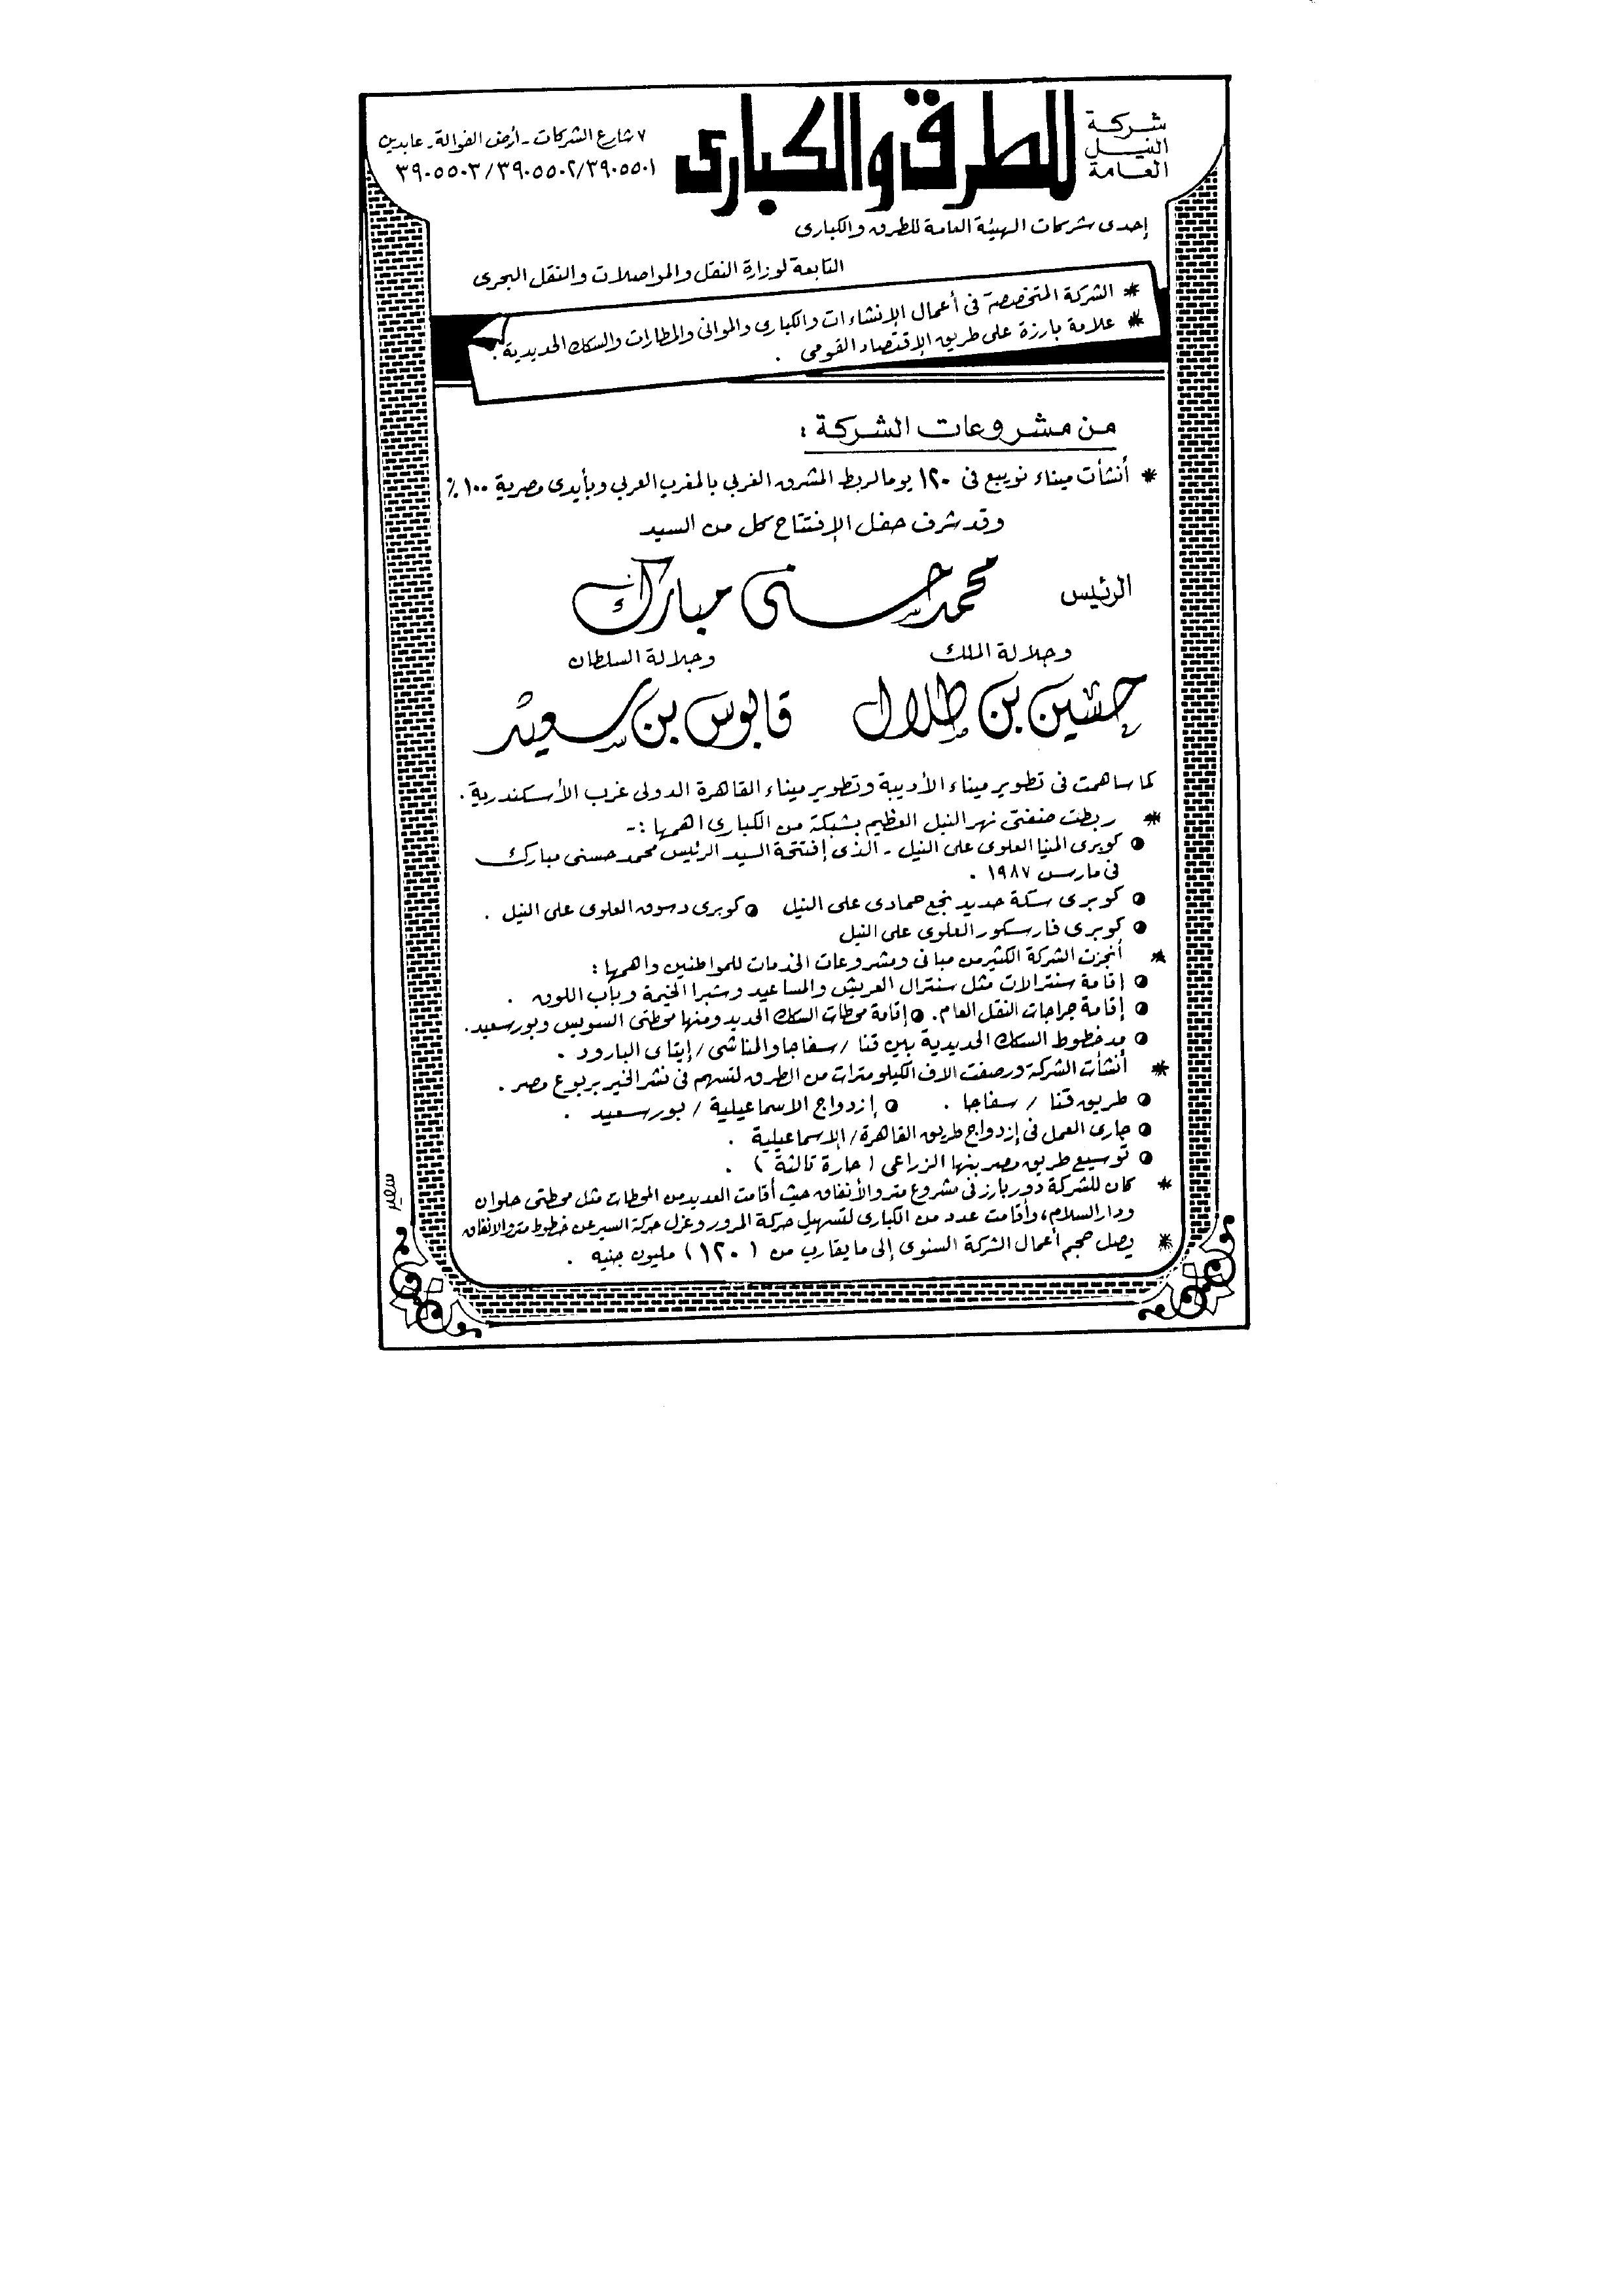 شركة
النيل
العامة
للطرق والكبارى
٧ شارع الشركات - أرض الفوالة - عابدين
٣٩٠٥٥٠١/٣٩٠٥٥٠٢/٣٩٠٥٥٠٣
إحدى شركات الهيئة العامة للطرق والكبارى
التابعة لوزارة النقل والمواصلات والنقل البحرى
* الشركة المتخصصة فى أعمال الإنشاءات والكبارى والموانى والمطارات والسكك الحديدية .
* علامة بارزة على طريق الإقتصاد القومى .
من مشروعات الشركة :
* أنشأت ميناء نويبع فى ١٢٠ يوما لربط المشرق العربي بالمغرب العربي وبأيدى مصرية ١٠٠ ٪
وقد شرف حفل الإفتتاح كل من السيد
الرئيس محمد حسنى مبارك
وجلالة الملك وجلالة السلطان
حسين بن طلال قابوس بن سعيد
كما ساهمت فى تطوير ميناء الأدبية وتطوير ميناء القاهرة الدولى غرب الأسكندرية .
* ربطت ضفتى نهر النيل العظيم بشبكة من الكبارى اهمها :-
● كوبرى المنيا العلوى على النيل - الذى إفتتحة السيد الرئيس محمد حسنى مبارك
فى مارس ١٩٨٧ .
● كوبرى سكة حديد نجع حمادى على النيل ● كوبرى دسوق العلوى على النيل .
● كوبرى فارسكور العلوى على النيل
* أنجزت الشركة الكثير من مبانى ومشروعات الخدمات للمواطنين واهمها :
● إقامة سنترالات مثل سنترال العريش والمساعيد وشبرا الخيمة وباب اللوق .
● إقامة جراجات النقل العام . ● إقامة محطات السكك الحديد ومنها محطتى السويس وبورسعيد .
● مد خطوط السكك الحديدية بين قنا / سفاجا والمناشى / إيتاى البارود .
* أنشأت الشركة ورصفت الاف الكيلومترات من الطرق لتسهم فى نشر الخير بربوع مصر .
● طريق قنا / سفاجا . ● إزدواج الاسماعيلية / بورسعيد .
● جارى العمل فى إزدواج طريق القاهرة / الإسماعيلية .
● توسيع طريق مصر بنها الزراعى ( حارة ثالثة ) .
* كان للشركة دور بارز فى مشروع مترو الأنفاق حيث أقامت العديد من المحطات مثل محطتى حلوان
ودار السلام ، وأقامت عدد من الكبارى لتسهيل حركة المرور وعزل حركة السير عن خطوط مترو الانفاق
* يصل حجم أعمال الشركة السنوى إلى ما يقارب من ( ١٢٠ ) مليون جنيه .